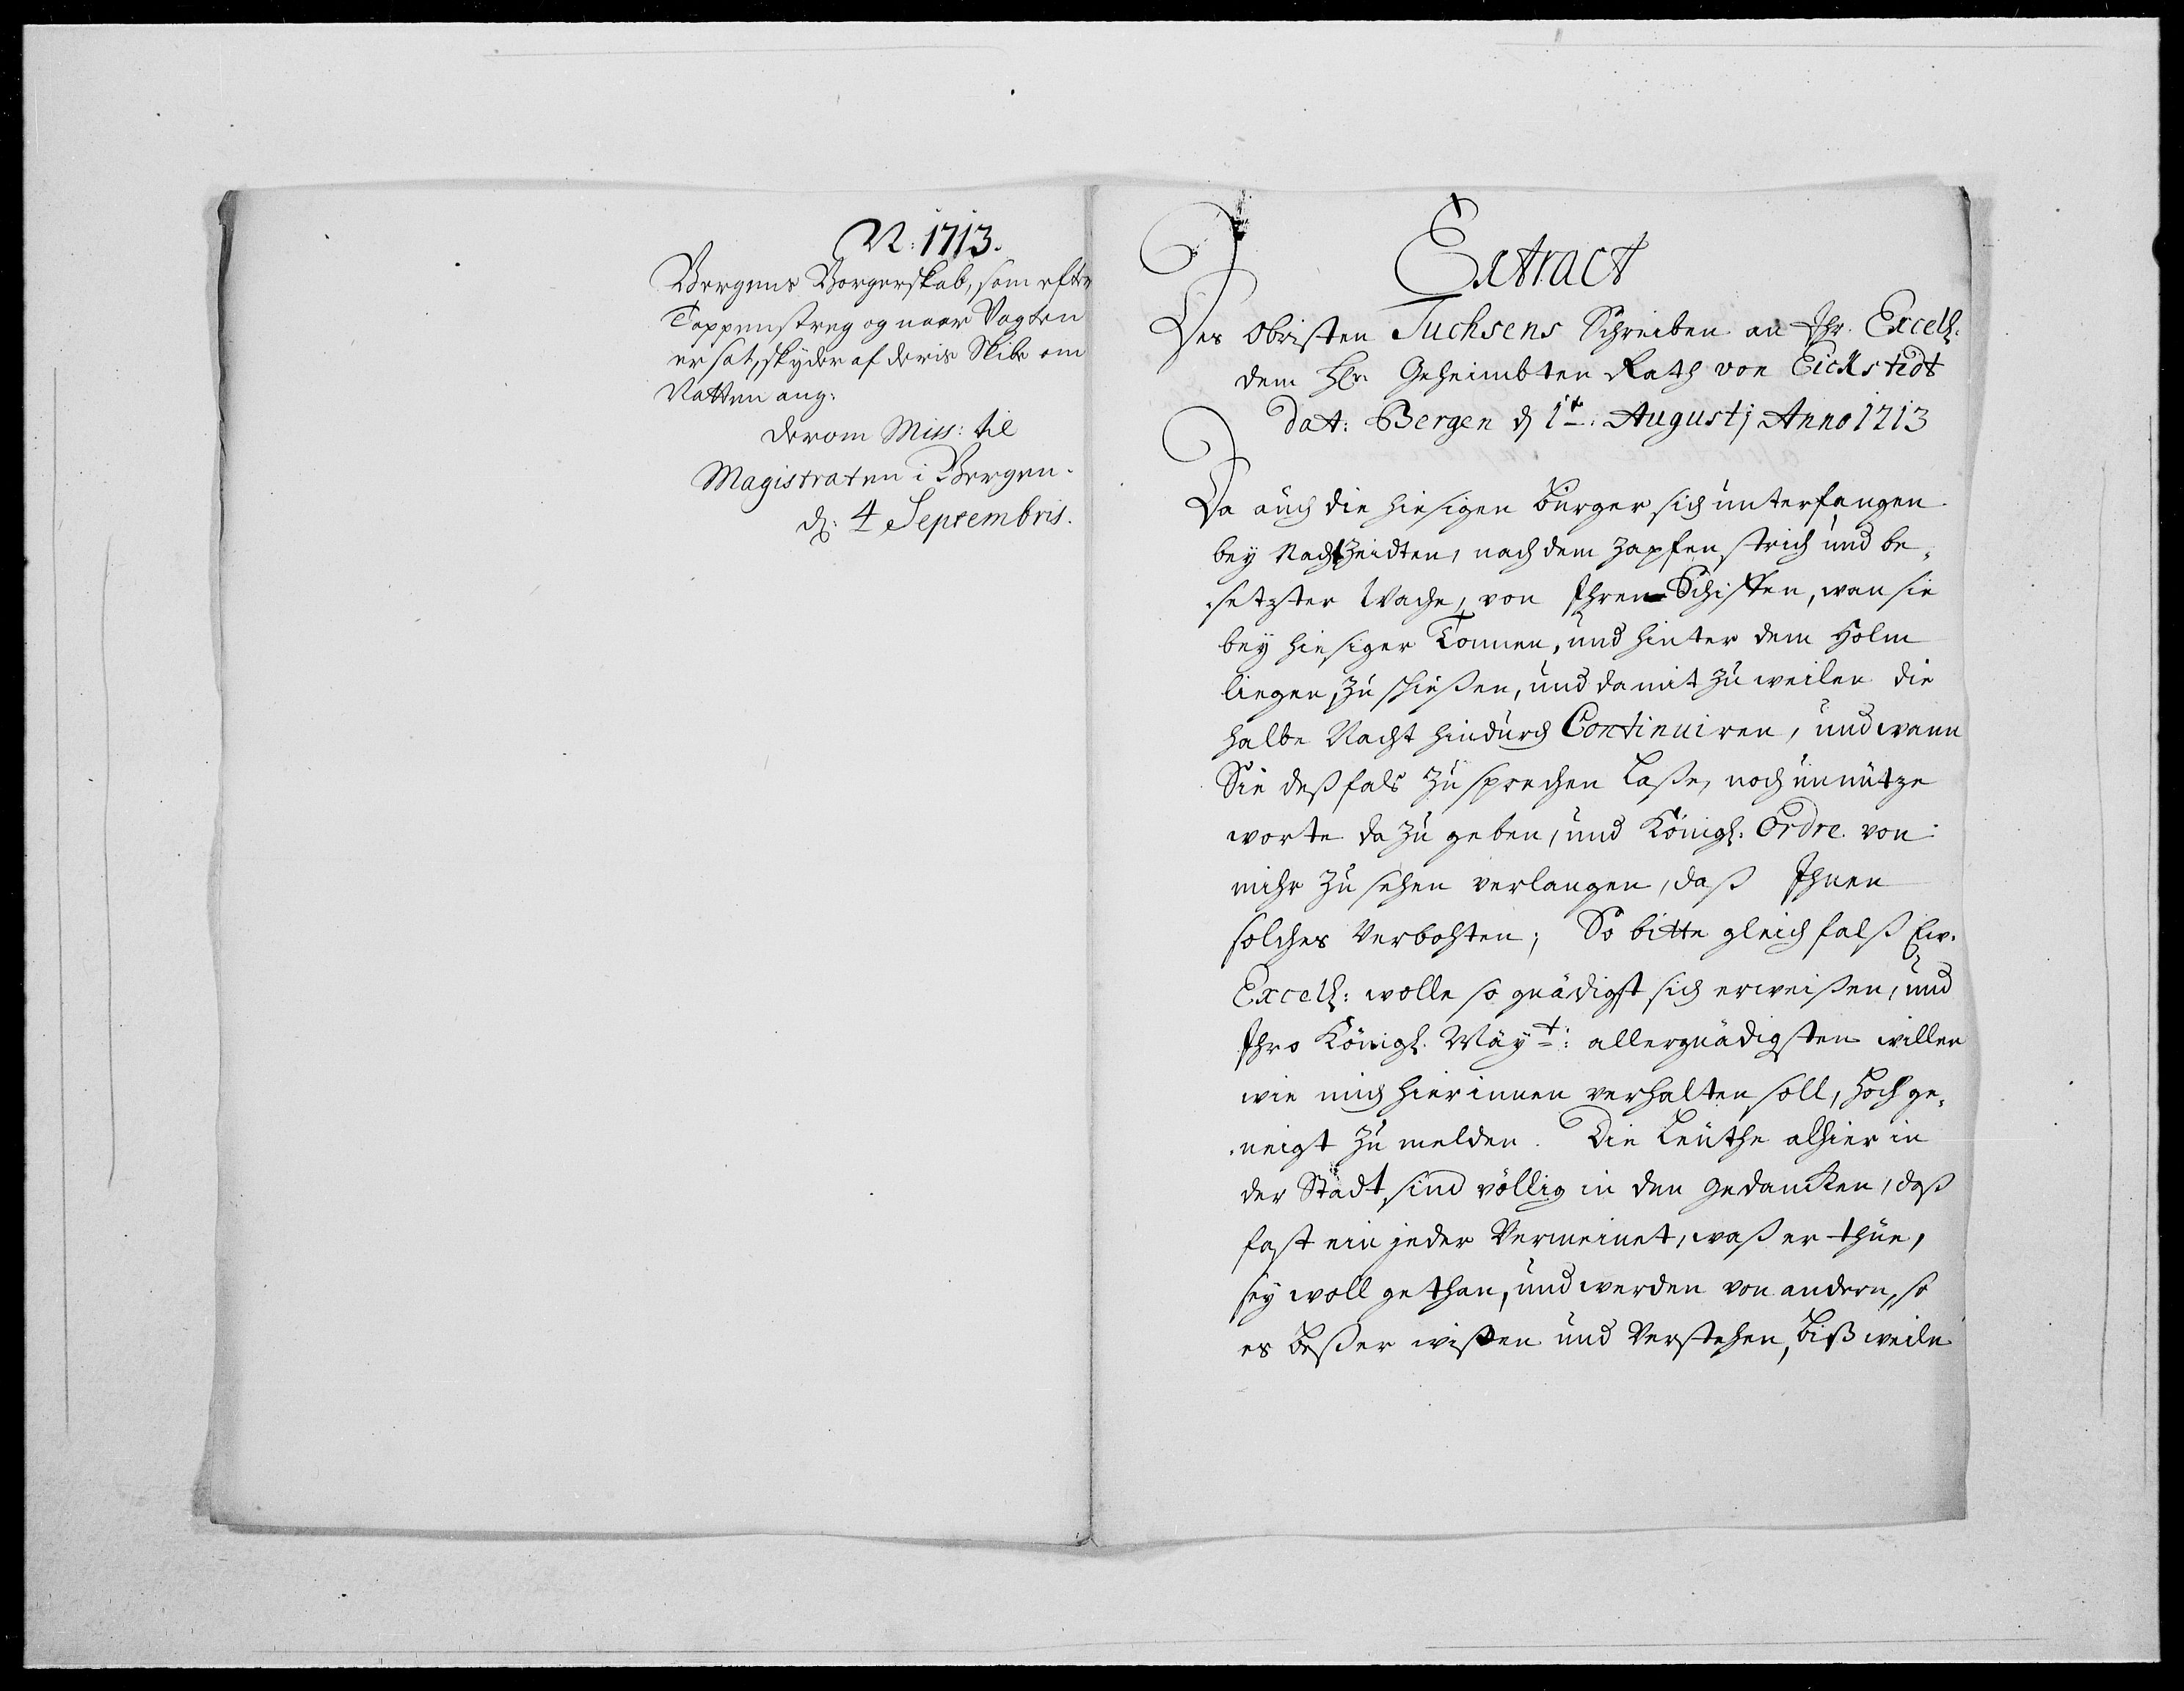 N: 1713.
Bergens Borgerskab, som efter
Tappenstreg og naar Vagten
er sat, skyder af deris Skibe om
Natten ang:
derom Miss: til
Magistraten i Bergen.
d: 4 Septembris.
Extract
Des Obristen Tuchsens Schreiben an Ihr. Excell:
dem Hln Geheimbten Rath von Eickstedt
dat: Bergen d 1t: Augustj Anno 1713
Da auch die hiesigen bürger sich unterfangen
bey Nachtzeidten, nach dem Zapfenstrich und be¬
setzter Wache, von Ihren Schiffen, wan sie
bey hiesiger Tonnen, und hinter dem Holm
liegen, zu schießen, und damit zu weilen die
halbe Nacht hindurch Continuiren, und wann
Sie deßfals zu sprechen laße, noch unnütze
worte dazu geben, und Königl: Ordre von
mihr zu sehen verlangen, daß Ihnen
solches Verbohten; So bitte gleichfalß Ew.
Excell: wolle so gnädigst sich erweißen, und
Ihro Königl. Mäyt: allergnädigsten willen
wie mich hierinnen verhalten soll, hoch ge¬
neigt zu melden. Die Leuthe alhier in
der Stadt, sind völlig in den gedancken, daß
fast ein jeder Vermeinet, waß er thue,
sey woll gethan, und werden von andern, so
es beßer wißen und Verstehen, bißweiln